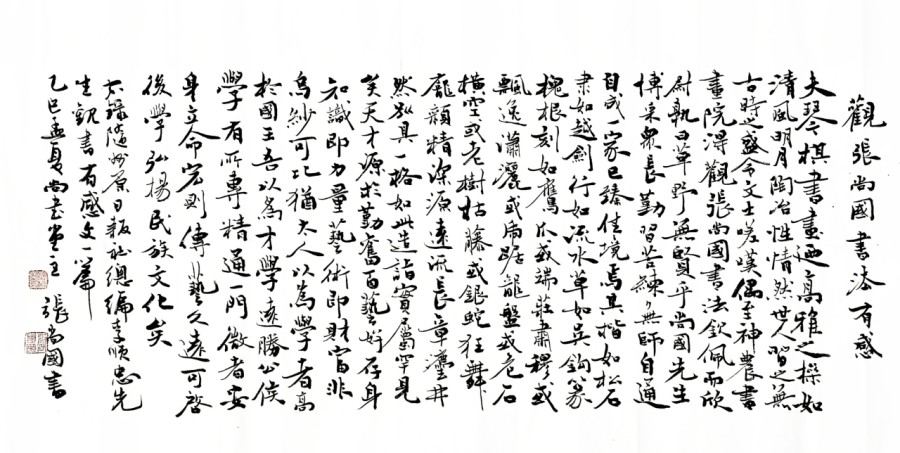 觀張尚國書法有感
夫琴棋書畫迺高雅之操如
清風明月陶冶性情然世人習之無
古時之盛令文士嗟嘆偶至神農書
畫院得觀張尚國書法欽佩而欣
慰孰曰草野無賢乎尚國先生
博采眾長勤習苦練無師自通
自成一家已臻佳境焉其楷如松石
隸如越劍行如流水草如吳鉤篆
槐根刻如鷹爪或端莊肅穆或
飄逸瀟灑或虎踞龍盤或危石
橫空或老樹枯藤或銀蛇狂舞
龐顏精深源遠流長章灋井
然別具一格如此造詣實屬罕見
矣天才源於勤奮百藝好存身
知識即力量藝術即財富非
烏紗可比猶夫人以為學者高
於國王吾以為才學遠勝公侯
學有所專精通一門微者安
身立命宏則傳藝久遠可啓
後學弘揚民族文化矣
右錄隨州原日報社總編李順忠先
生觀書有感文一篇
乙巳孟夏尚書堂主張尚國書